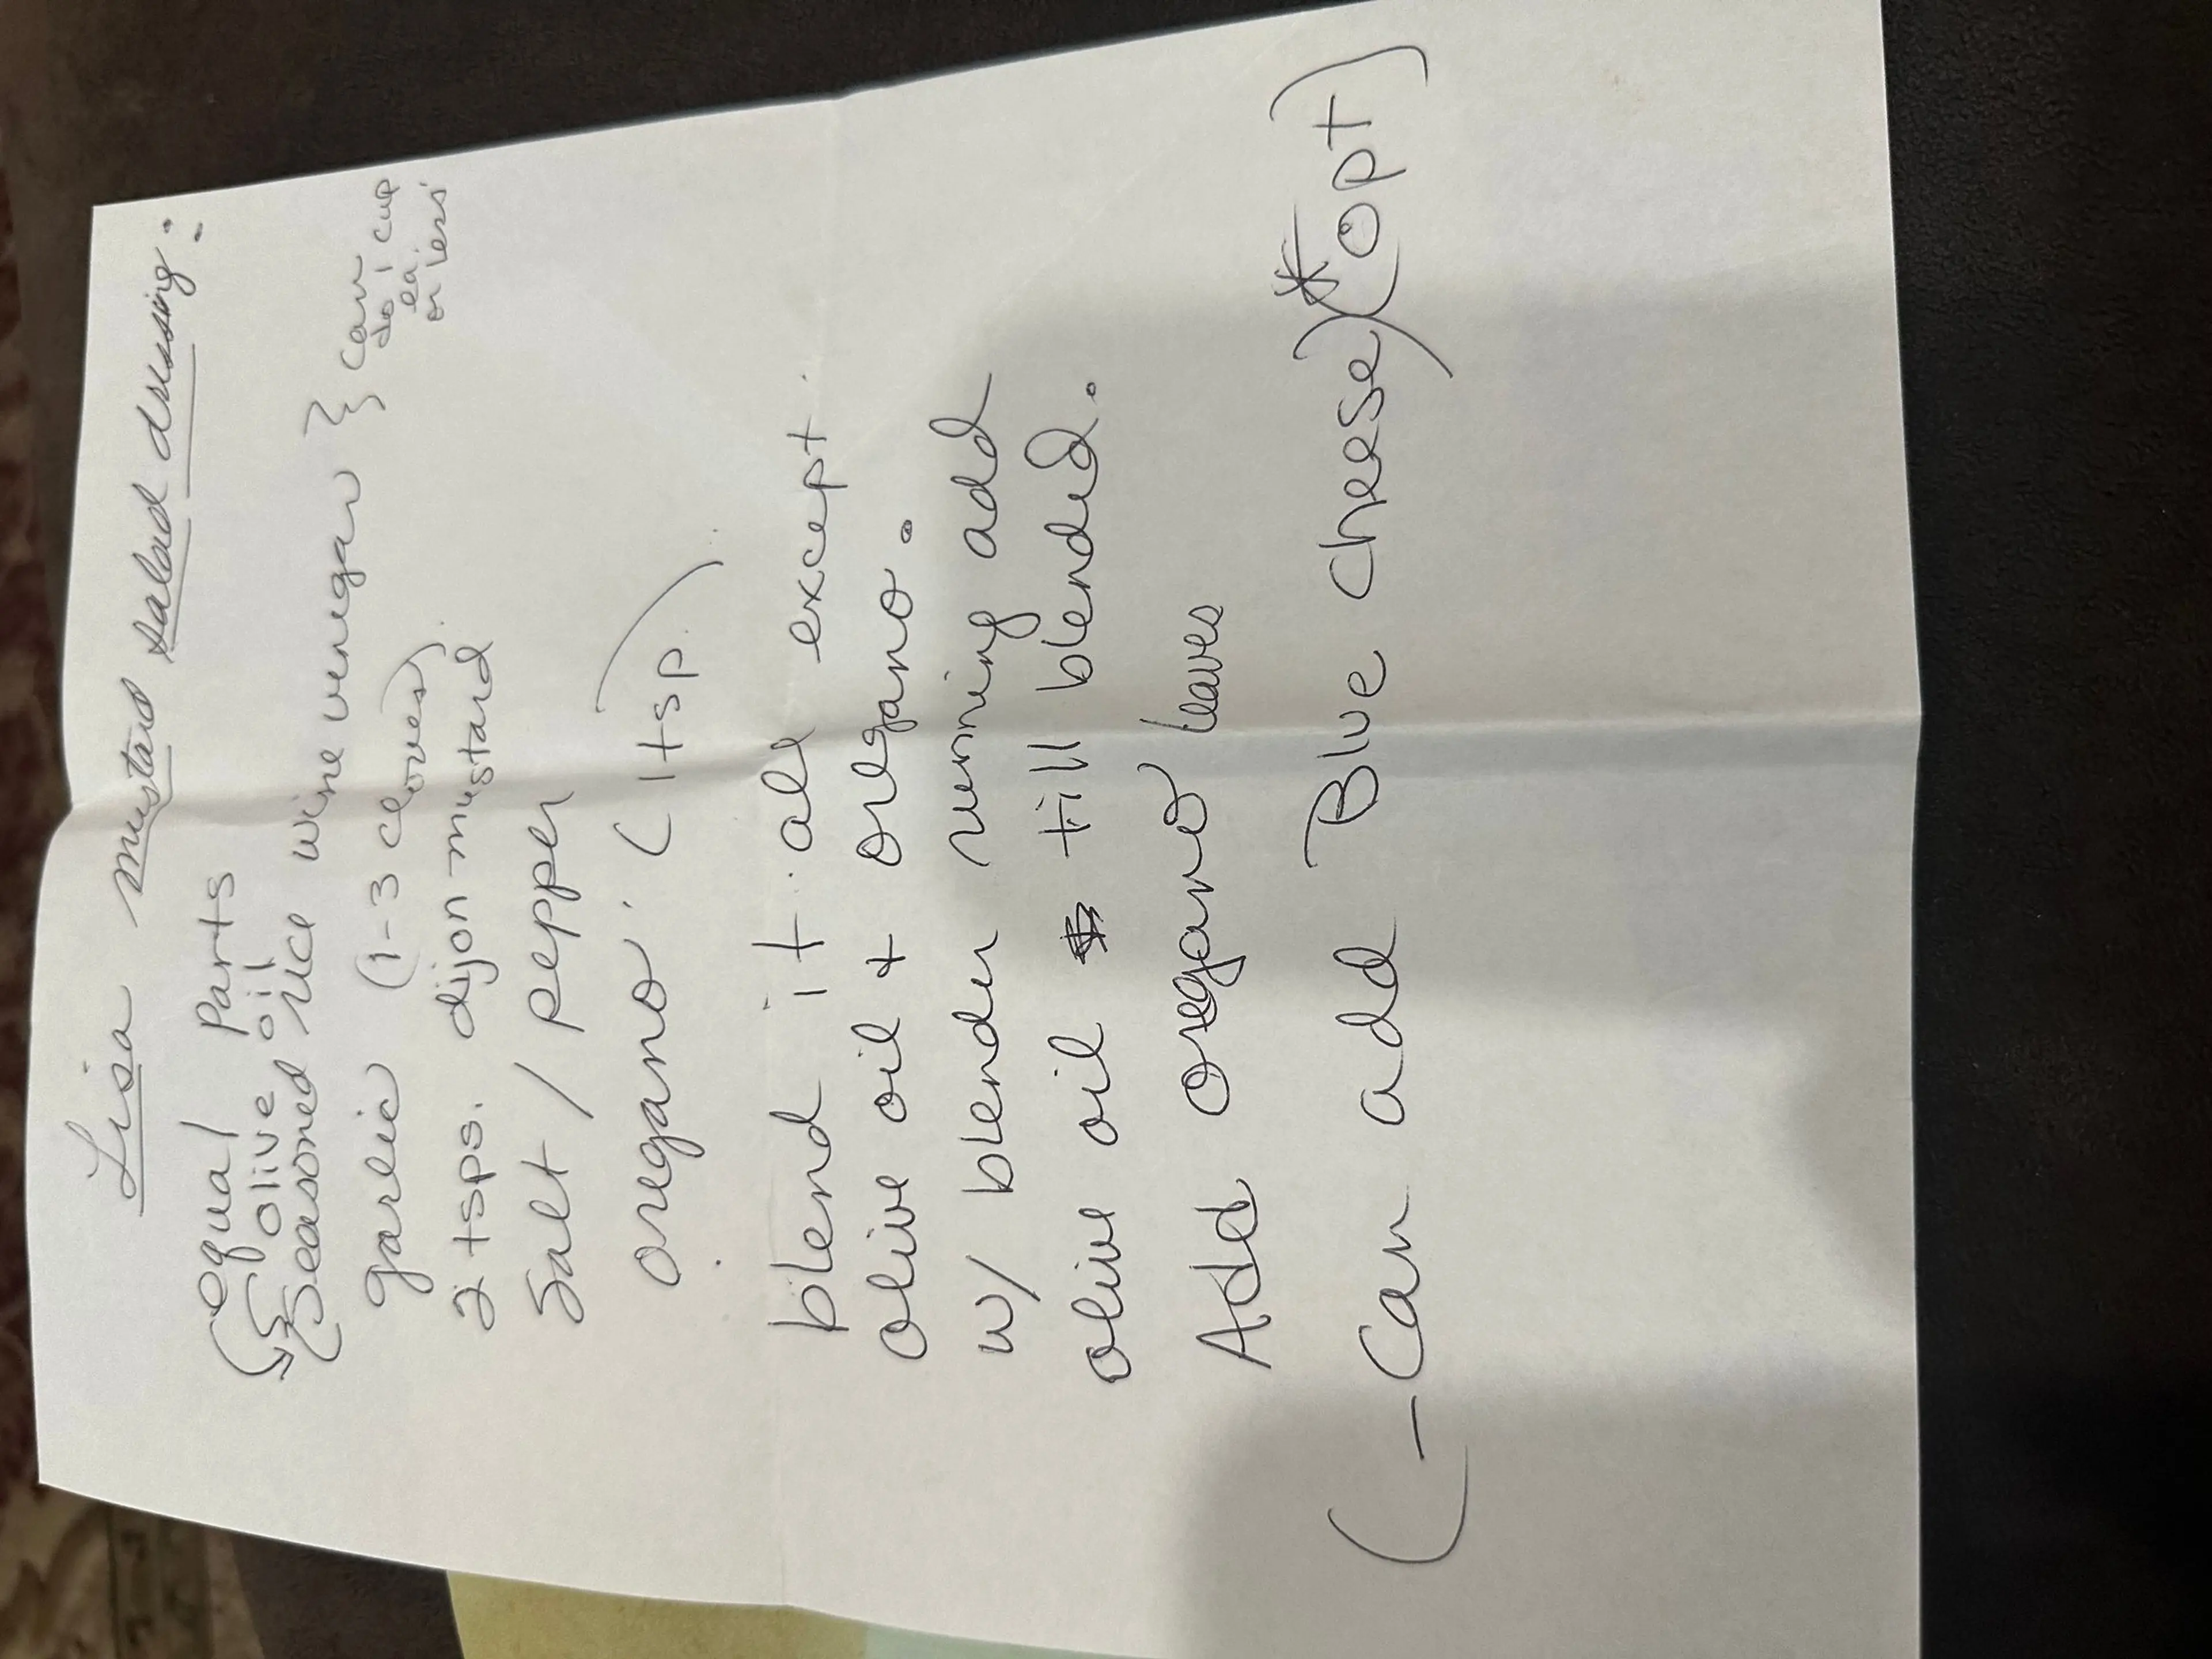 Lisa mustard salad dressing:
equal parts
olive oil
seasoned rice wine vinegar } can
do 1 cup
ea.
or less
garlic (1-3 cloves).
2 tsps. dijon mustard
Salt / pepper
oregano. (1 tsp.)
blend it all except
olive oil + oregano.
w/ blender running add
olive oil till blended.
Add oregano leaves
(-Can add Blue cheese)* (opt)